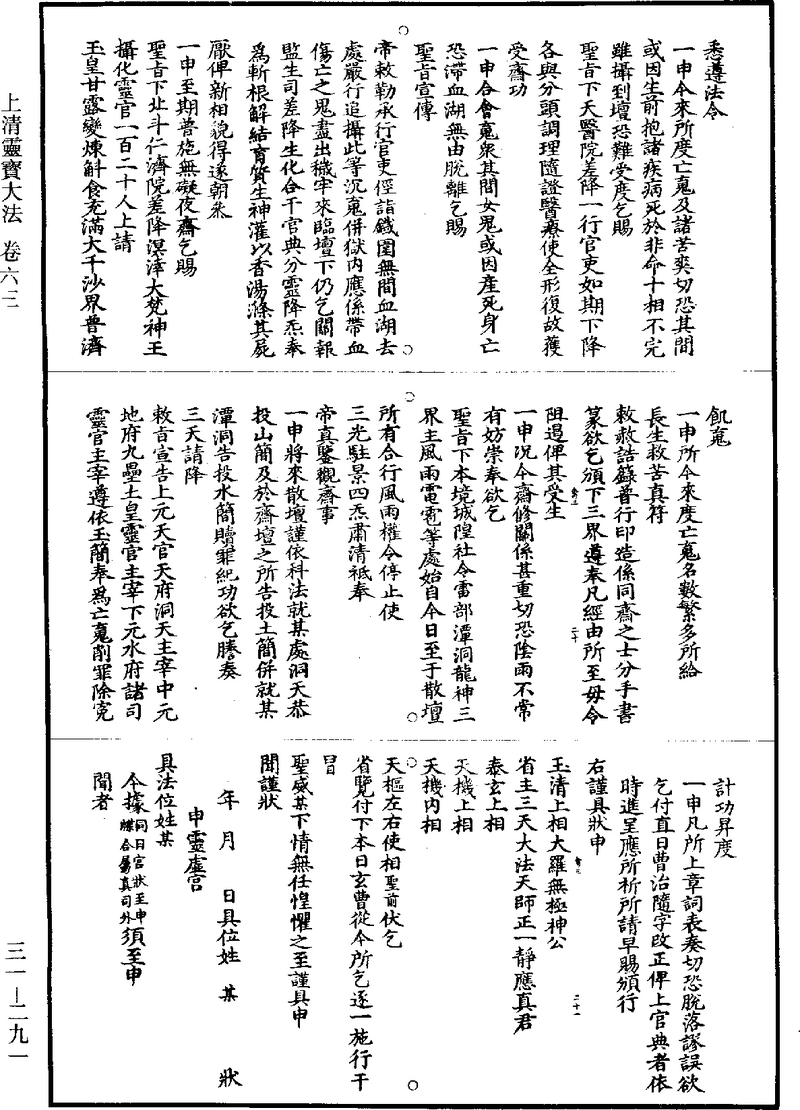 上清靈寶大法　卷六三
悉遵法令
一申今來所度亡䰟及諸苦爽切恐其間
或因生前抱諸疾病死於非命十相不完
雖攝到壇恐難受度乞賜
聖旨下天醫院差降一行官吏如期下降
各與分頭調理隨證醫療使全形復故獲
受齋功
一申合會䰟衆其間女鬼或因產死身亡
恐滯血湖無由脫離乞賜
聖旨宣傳
帝敕勒承行官吏徑詣鐵圍無間血湖去
處嚴行追攝此等沉䰟併獄内應係帶血
傷亡之鬼盡出穢牢來臨壇下仍乞關報
監生司差降生化合干官典分靈降炁奉
爲斬根解結育質生神灌以香湯滌其屍
厭俾新相貌得遂朝叅
一申至期普施無礙夜齋乞賜
聖旨下北斗仁濟院差降溟滓大梵神王
攝化靈官一百二十人上請
玉皇甘露變煉斛食充滿大千沙界普濟
飢䰟
一申所今來度亡䰟名數繁多所給
長生救苦真符
敕救誥籙普行印造係同齋之士分手書
篆欲乞頒下三界遵奉凡經由所至毋令
阻遏俾其受生
一申况今齋修關係甚重切恐陰雨不常
有妨崇奉欲乞
聖旨下本境城隍社令雷部潭洞龍神三
界主風雨雷電雹等處始自今日至于散壇
所有合行風雨權令停止使
三光駐景四炁肅清祗奉
帝真鑒觀齋事
一申將來散壇謹依科法就某處洞天恭
投山簡及於齋壇之所告投土簡併就某
潭洞告投水簡贖罪紀功欲乞謄奏
三天請降
敕旨宣告上元天官天府洞天主宰中元
地府九壘土皇靈官主宰下元水府諸司
靈官主宰遵依玉簡奉爲亡䰟削罪除寃
計功昇度
一申凡所上章詞表奏切恐脫落謬誤欲
乞付直日曹治隨字改正俾上官典者依
時進呈應所祈所請早賜頒行
右謹具狀申
玉清上相大羅無極神公
省主三天大法天師正一靜應真君
泰玄上相
天機上相
天機内相
天樞左右使相聖前伏乞
省覽付下本日玄曹從今所乞逐一施行干
冒
聖威某下情無任惶懼之至謹具申
聞謹狀
年　月　日具位姓　某　狀
申靈虛宮
具法位姓某
今據同日官狀至申牒合屬真司外須至申
聞者
三一—二九一